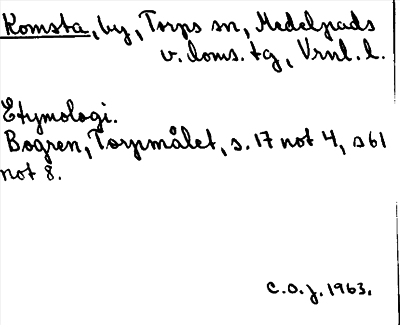 Komsta, by, Torps sn, Medelpads
v. doms. tg, Vrnl. l.
Etymologi.
Bogren, Torpmålet, s. 17 not 4, s 61
not 8.
C.O.J. 1963.